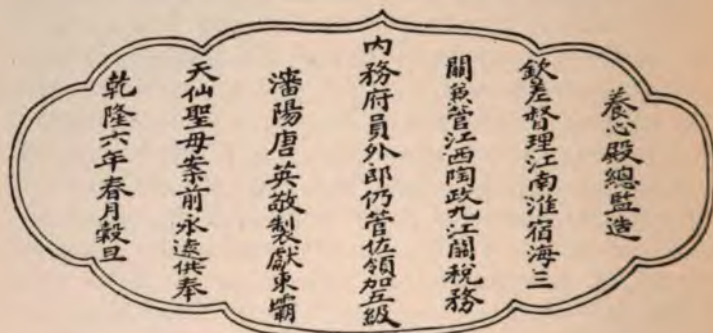 養心殿總監造
欽差督理江南淮宿海三
關兼管江西陶政九江關稅務
內務府員外郎仍管佐領加五級
瀋陽唐英敬製獻東霸
天仙聖母案前永遠供奉
乾隆六年春月穀旦